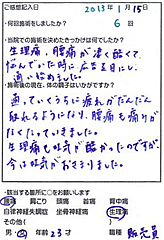 ご感想記入日 2013年1月15日
・何回施術をしましたか？
6回
・当院での施術を決めたきっかけは何でしたか？
生理痛、腰痛が凄く酷くて
悩んでいた時に広告を目にし
通い始めました。
・施術後の現在、体の調子はいかがですか？
通っていくうちに疲れがだんだん
取れるようになり、腰痛も痛りが
たくなっていきました。
生理痛も吐気が酷かったのですが、
今は吐気がおさまりました。
・該当する箇所に○をお願いします
腰痛 肩こり 頭痛 首痛 背中痛
自律神経失調症 坐骨神経痛 生理痛
その他
男・女 年齢23才 職種 販売員